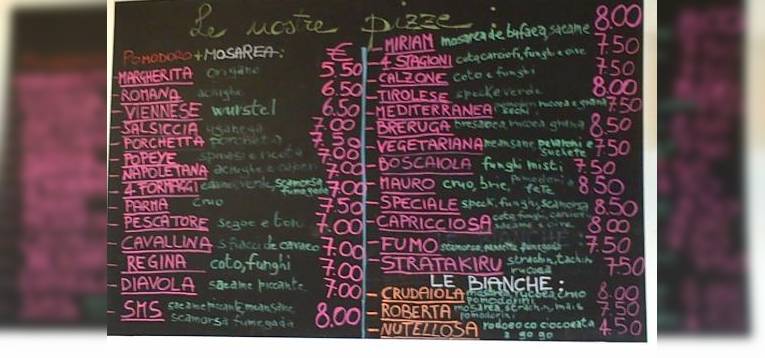 Le nostre pizze:
POMODORO + MOSAREA: €
MARGHERITA origano 5.50
ROMANA aciughe 6.50
VIENNESE wurstel 6.50
SALSICCIA 7.00
PORCHETTA porchetta 7.50
POPEYE spinasi e ricota 7.00
NAPOLETANA aciughe e caperi 7.00
4 FORMAGGI scamorsa fumegada 7.00
PARMA cruo 7.50
PESCATORE segoe e ton 7.00
CAVALLINA sfilacci de cavaeo 7.00
REGINA coto, funghi 7.00
DIAVOLA saeame piccante 7.00
SMS saeame piccante, meansane
scamorsa fumegada 8.00
MIRIAM mosarea de bufaea, saeame 8.00
4 STAGIONI coto, carciofi, funghi e oive 7.50
CALZONE coto e funghi 7.50
TIROLESE speck e verde 8.00
MEDITERRANEA pomodori sechi, rucoea e grana 7.50
BRERUGA bresaoea, rucoea grana 8.50
VEGETARIANA meansane pevaroni e
suchete 7.50
BOSCAIOLA funghi misti 7.50
MAURO cruo, brie, pomodorini a
fete 8.50
SPECIALE speck, funghi, scamorsa 8.50
CAPRICCIOSA coto, funghi, carciofi
saeame e oive 8.00
FUMO scamorsa, pansetta fumegada 7.50
STRATAKIRU strachin, tachin
rucoea 7.50
LE BIANCHE:
CRUDAIOLA mosarea, rucoea, cruo
pomodorini 8.00
ROBERTA mosarea, strachin, mais
pomodorini 7.50
NUTELLOSA rodoeo co ciocoeata
a go go 4.50